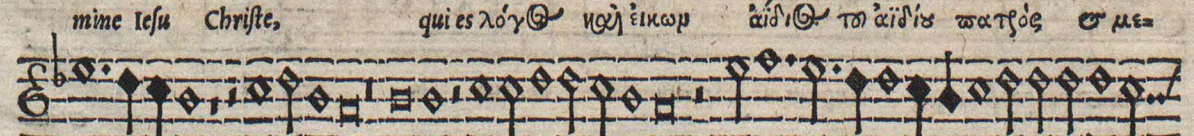 mine Iesu Christe, qui es λόγος καὶ ἐικὼρ ἀίδιος τοῦ ἀϊδίου πατρὸς & με=